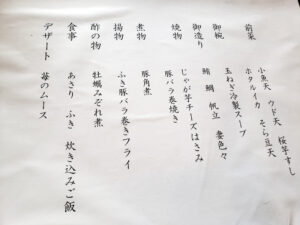 前菜 小魚天 ウド天 桜芋すし
ホタルイカ そら豆天
御椀 玉ねぎ冷製スープ
御造り 鮪 鯛 帆立 妻色々
焼物 じゃが芋チーズはさみ
豚バラ巻焼き
煮物 豚角煮
揚物 ふき豚バラ巻きフライ
酢の物 牡蠣みぞれ煮
食事 あさり ふき 炊き込みご飯
デザート 苺のムース